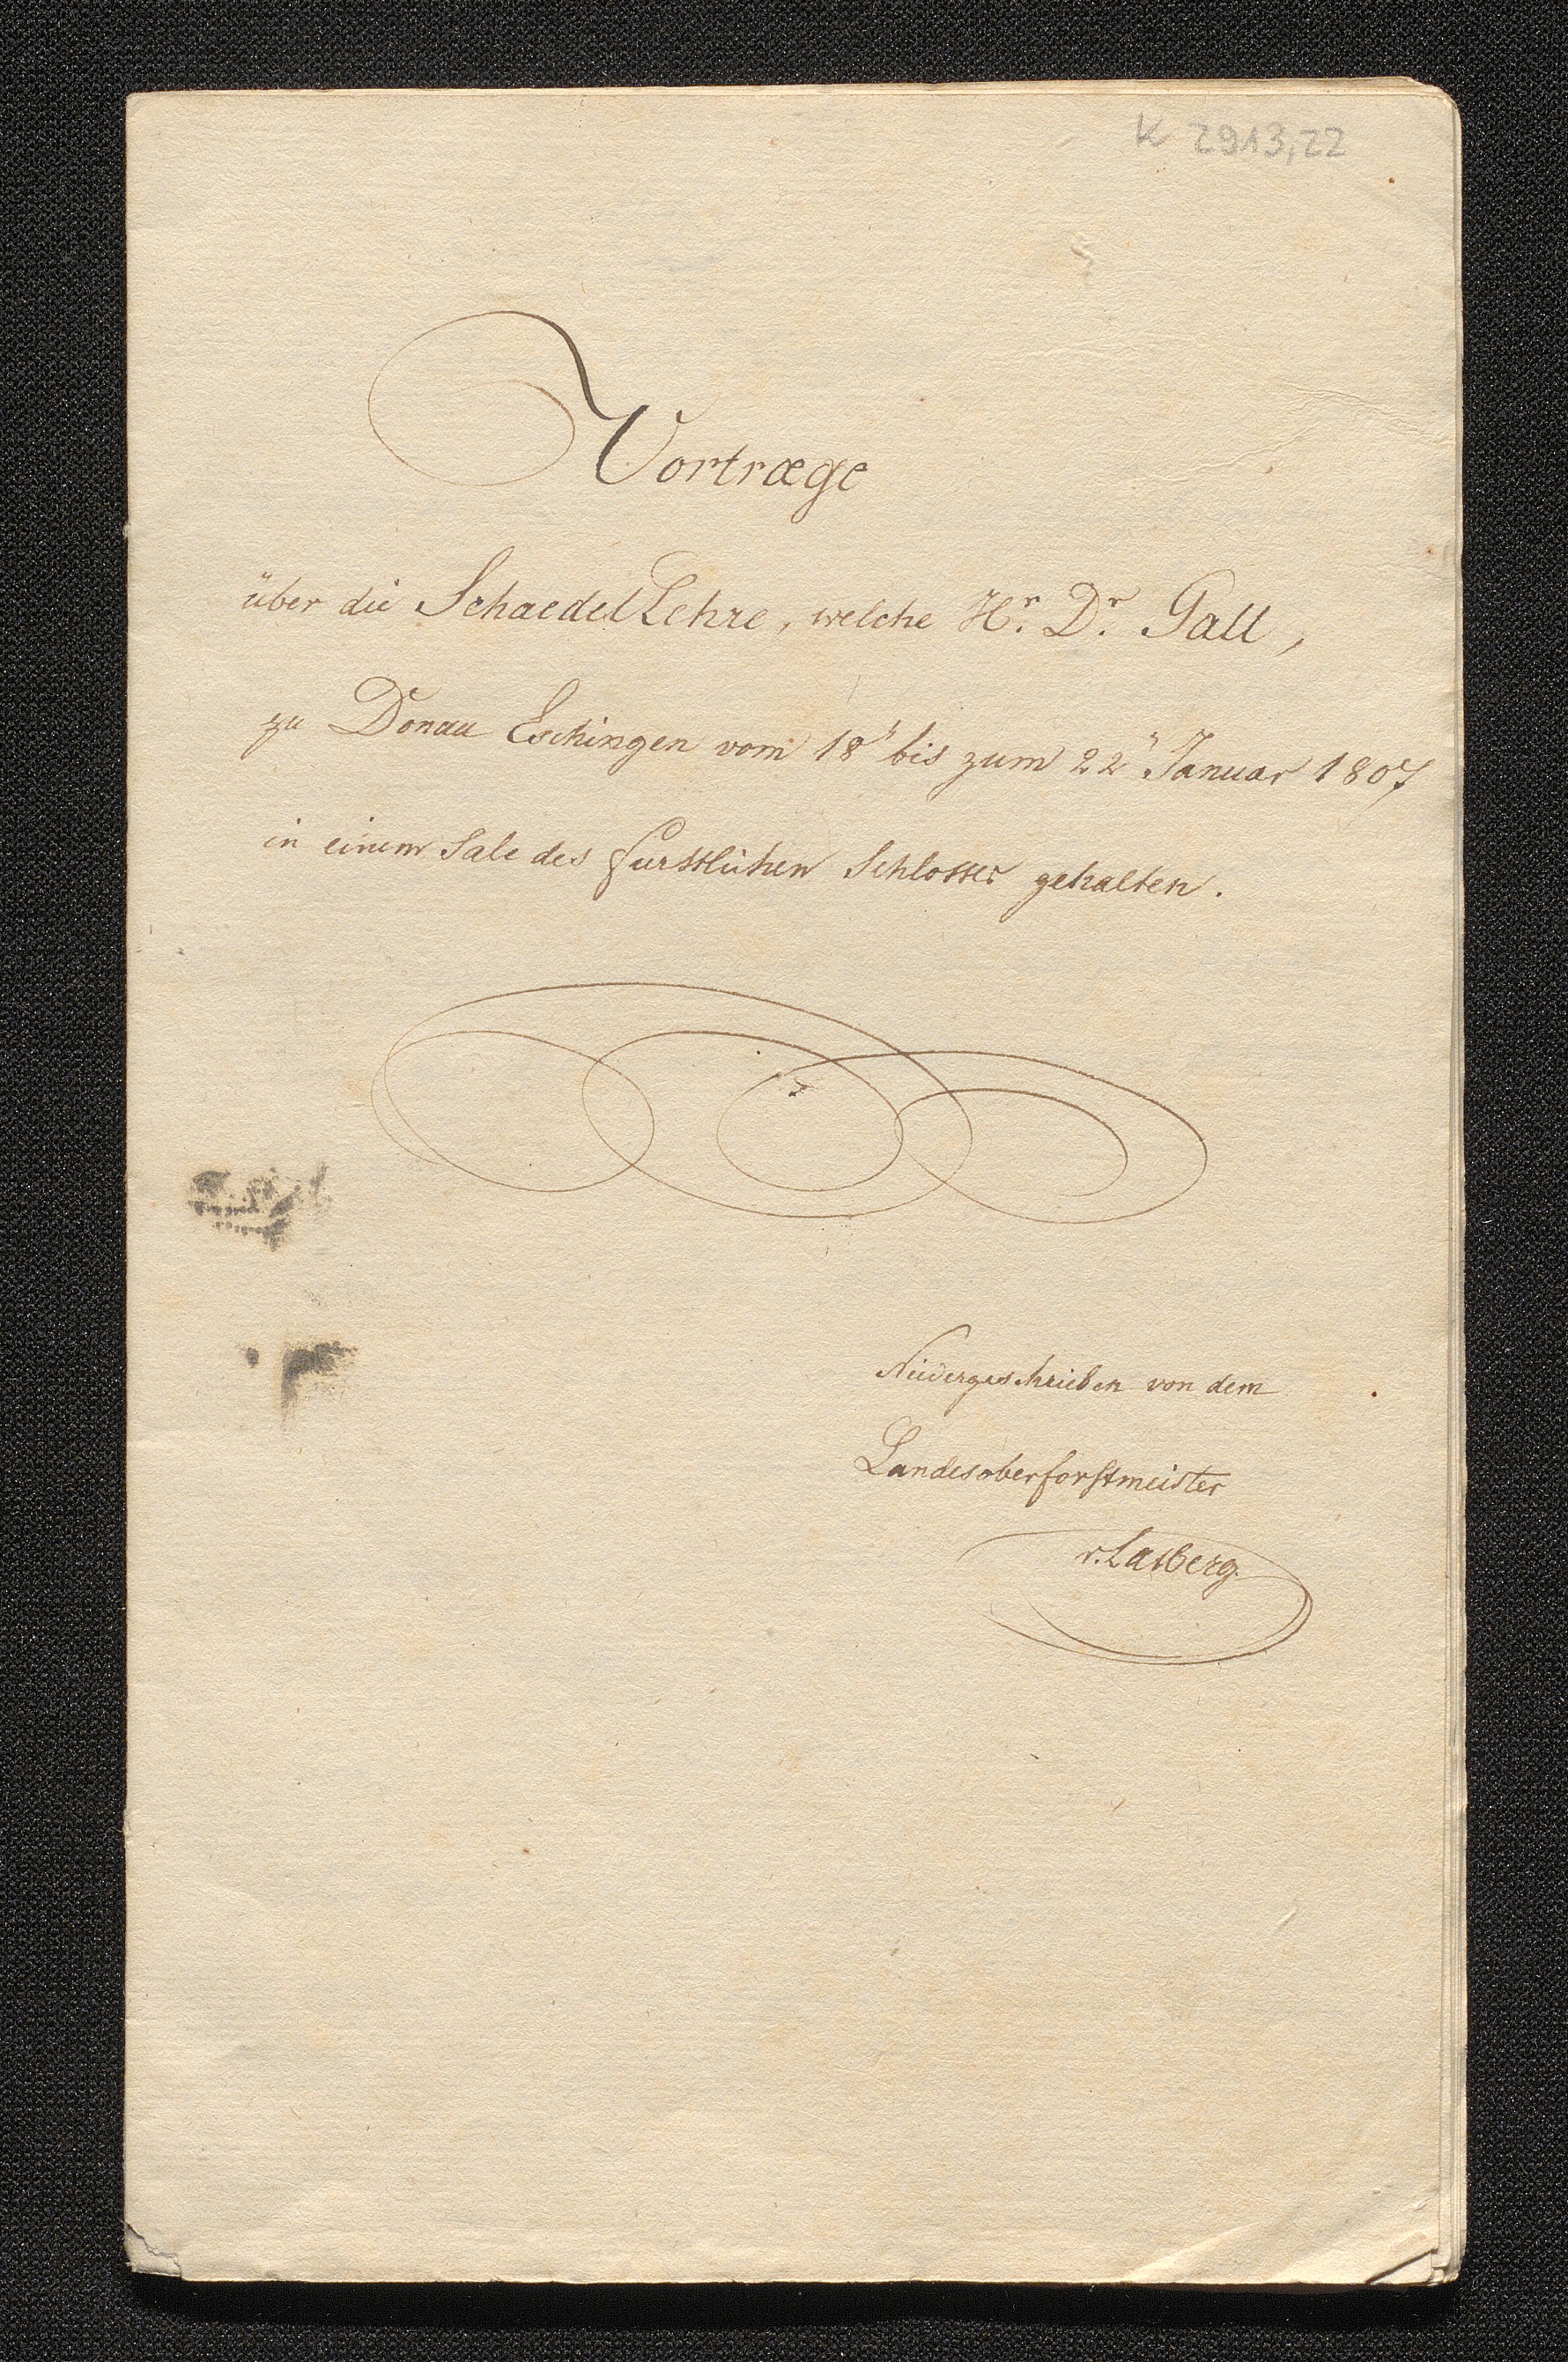 K 2913,22
Vortræge
über die Schaedel Lehre, welche Hr. Dr. Gall,
zu Donau Eschingen vom 18" bis zum 22" Januar 1807
in einem Sale des furstlichen Schlosses gehalten.
Niedergeschrieben von dem
Landesoberforstmeister
v. Lasberg.